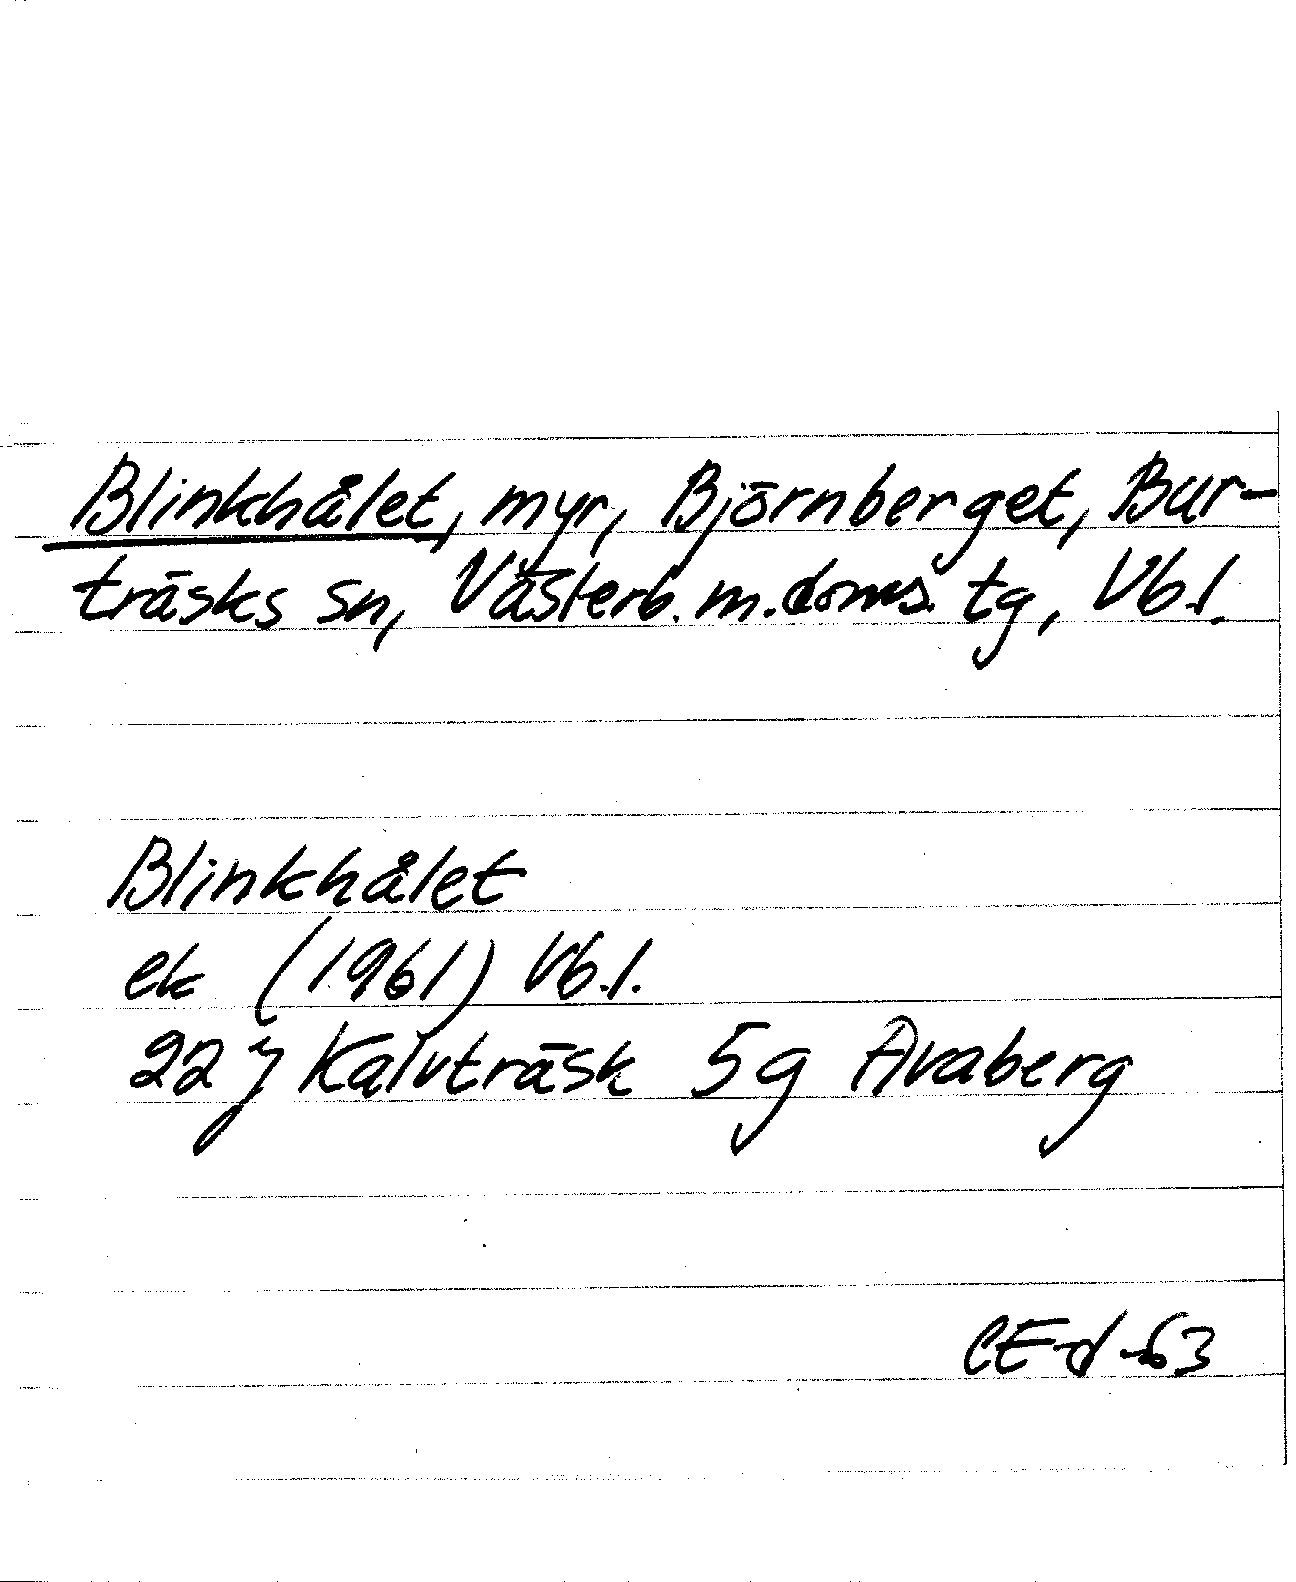 Blinkhålet, myr, Björnberget, Bur-
träsks sn, Västerb. m. doms. tg, Vb.l.
Blinkhålet
ek (1961) Vb.l.
22 J Kalvträsk 5g Avaberg
CE-d -63